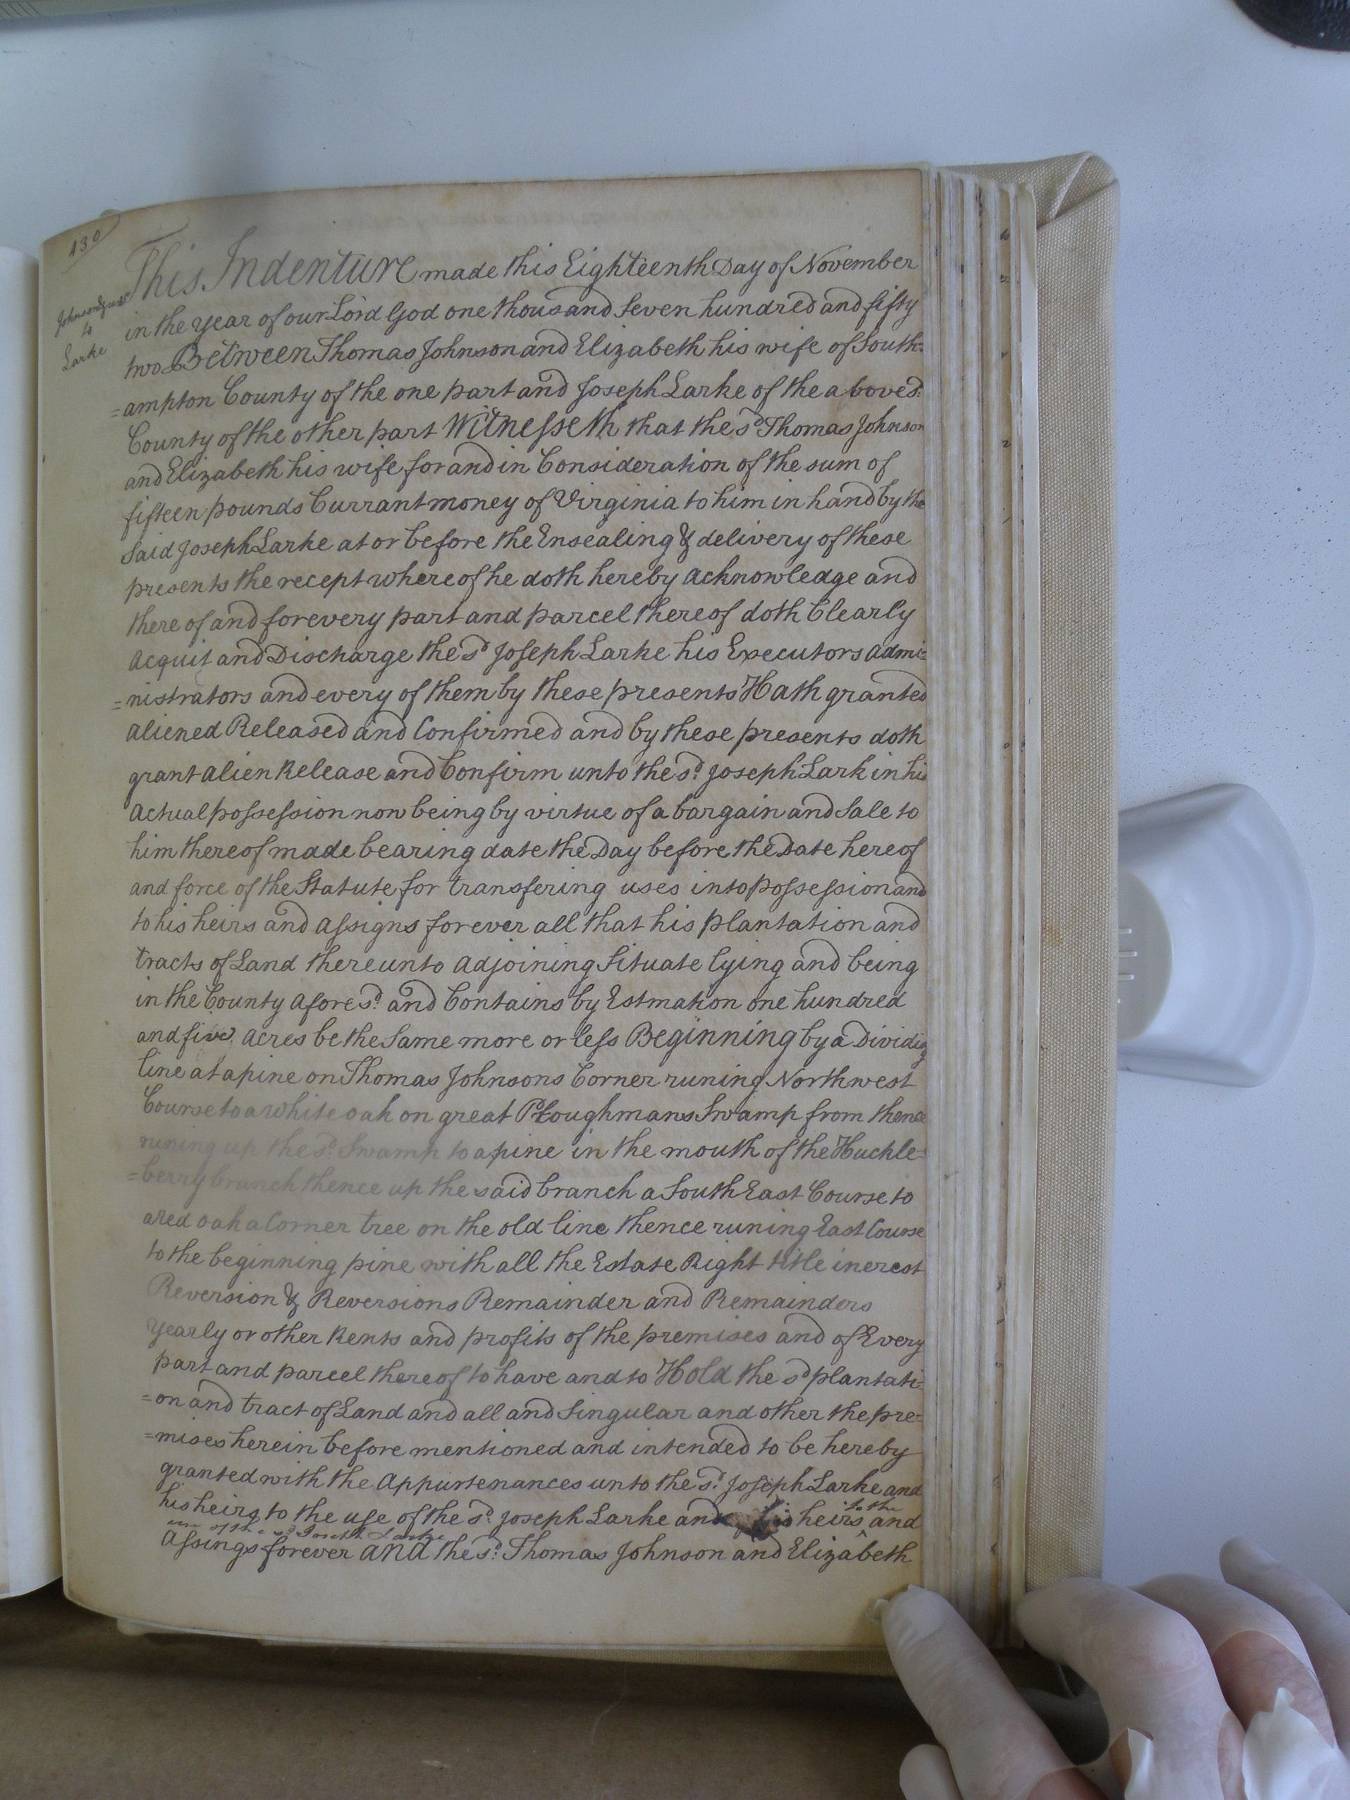 130
Johnson & uxr
to
Larke
This Indenture made this Eighteenth Day of November
in the year of our Lord God one thousand Seven hundred and fifty
two Between Thomas Johnson and Elizabeth his wife of South=
=ampton County of the one part and Joseph Larke of the aboves.d
County of the other part Witnesseth that the s.d Thomas Johnson
and Elizabeth his wife for and in Consideration of the sum of
fifteen pounds Currant money of Virginia to him in hand by the
Said Joseph Larke at or before the Ensealing & delivery of these
presents the recept whereof he doth hereby acknowledge and
there of and for every part and parcel thereof doth Clearly
acquit and Discharge the s.d Joseph Larke his Executors admi=
=nistrators and every of them by these presents Hath granted
aliened Released and Confirmed and by these presents doth
grant alien Release and Confirm unto the s.d Joseph Lark in his
actual possession now being by virtue of a bargain and Sale to
him thereof made bearing date the Day before the Date hereof
and force of the Statute for transfering uses into possession and
to his heirs and assigns forever all that his plantation and
tracts of Land thereunto adjoining Situate lying and being
in the County afores.d and Contains by Estmation one hundred
and five acres be the Same more or less Beginning by a Dividig
line at a pine on Thomas Johnsons Corner runing Northwest
Course to a white oak on great Ploughmans Swamp from thence
runing up the s.d Swamp to a pine in the mouth of the Huckle=
=berry branch thence up the said branch a South East Course to
a red oak a Corner tree on the old line thence runing East Course
to the beginning pine with all the Estate Right title inerest
Reversion & Reversions Remainder and Remainders
yearly or other Rents and profits of the premises and of Every
part and parcel thereof to have and to Hold the s.d plantati=
=on and tract of Land and all and Singular and other the pre=
=mises herein before mentioned and intended to be hereby
granted with the Appurtenances unto the s.d Joseph Larke and
his heirs to the use of the s.d Joseph Larke and his heirs and
to the
use of the s.d Joseph Larke
Assings forever and the s.d Thomas Johnson and Elizabeth